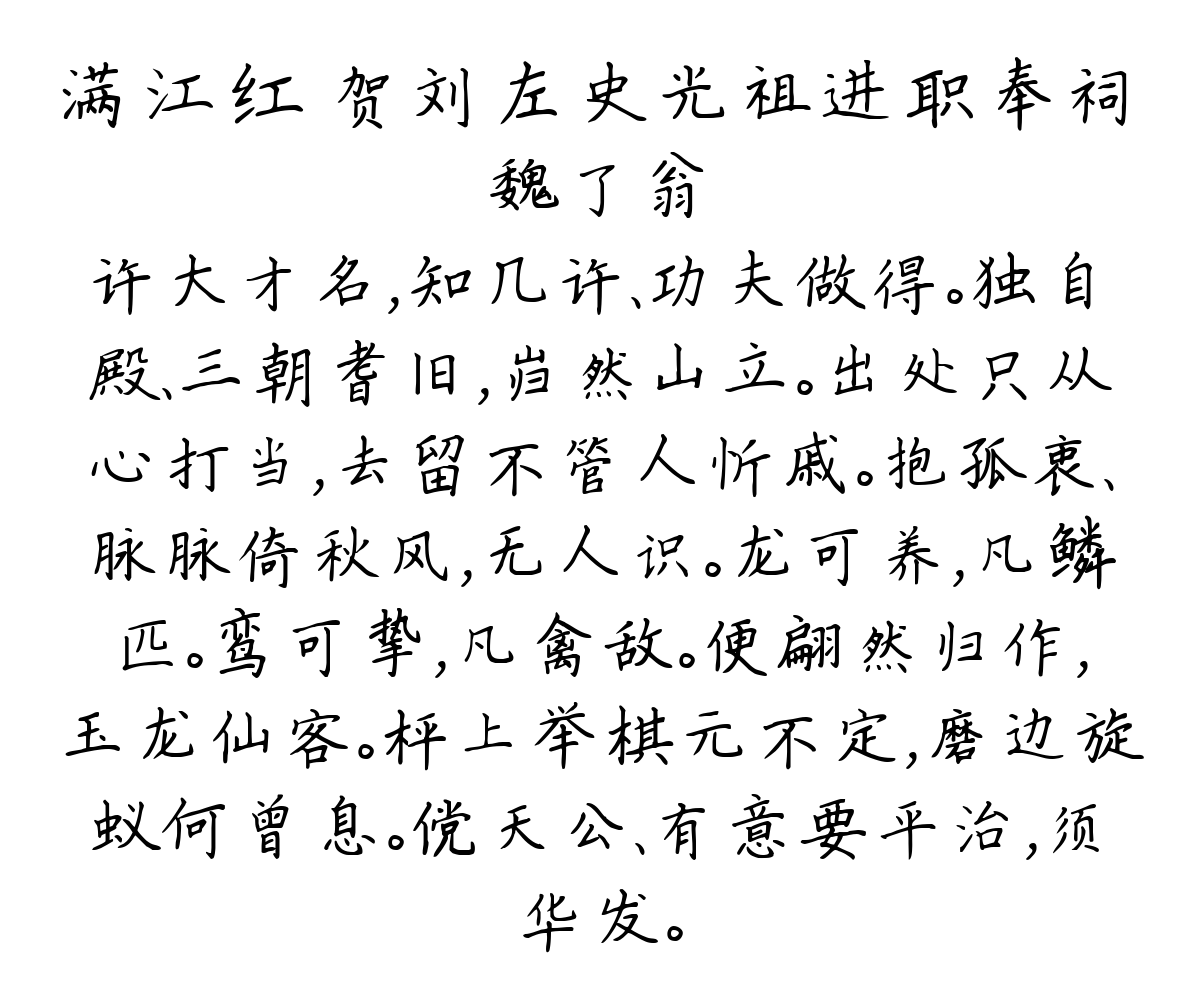 满江红 贺刘左史光祖进职奉祠
魏了翁
许大才名,知几许、功夫做得。独自
殿、三朝耆旧,岿然山立。出处只从
心打当,去留不管人忻戚。抱孤衷、
脉脉倚秋风,无人识。龙可养,凡鳞
匹。鸾可挚,凡禽敌。便翩然归作,
玉龙仙客。枰上举棋元不定,磨边旋
蚁何曾息。傥天公、有意要平治,须
华发。